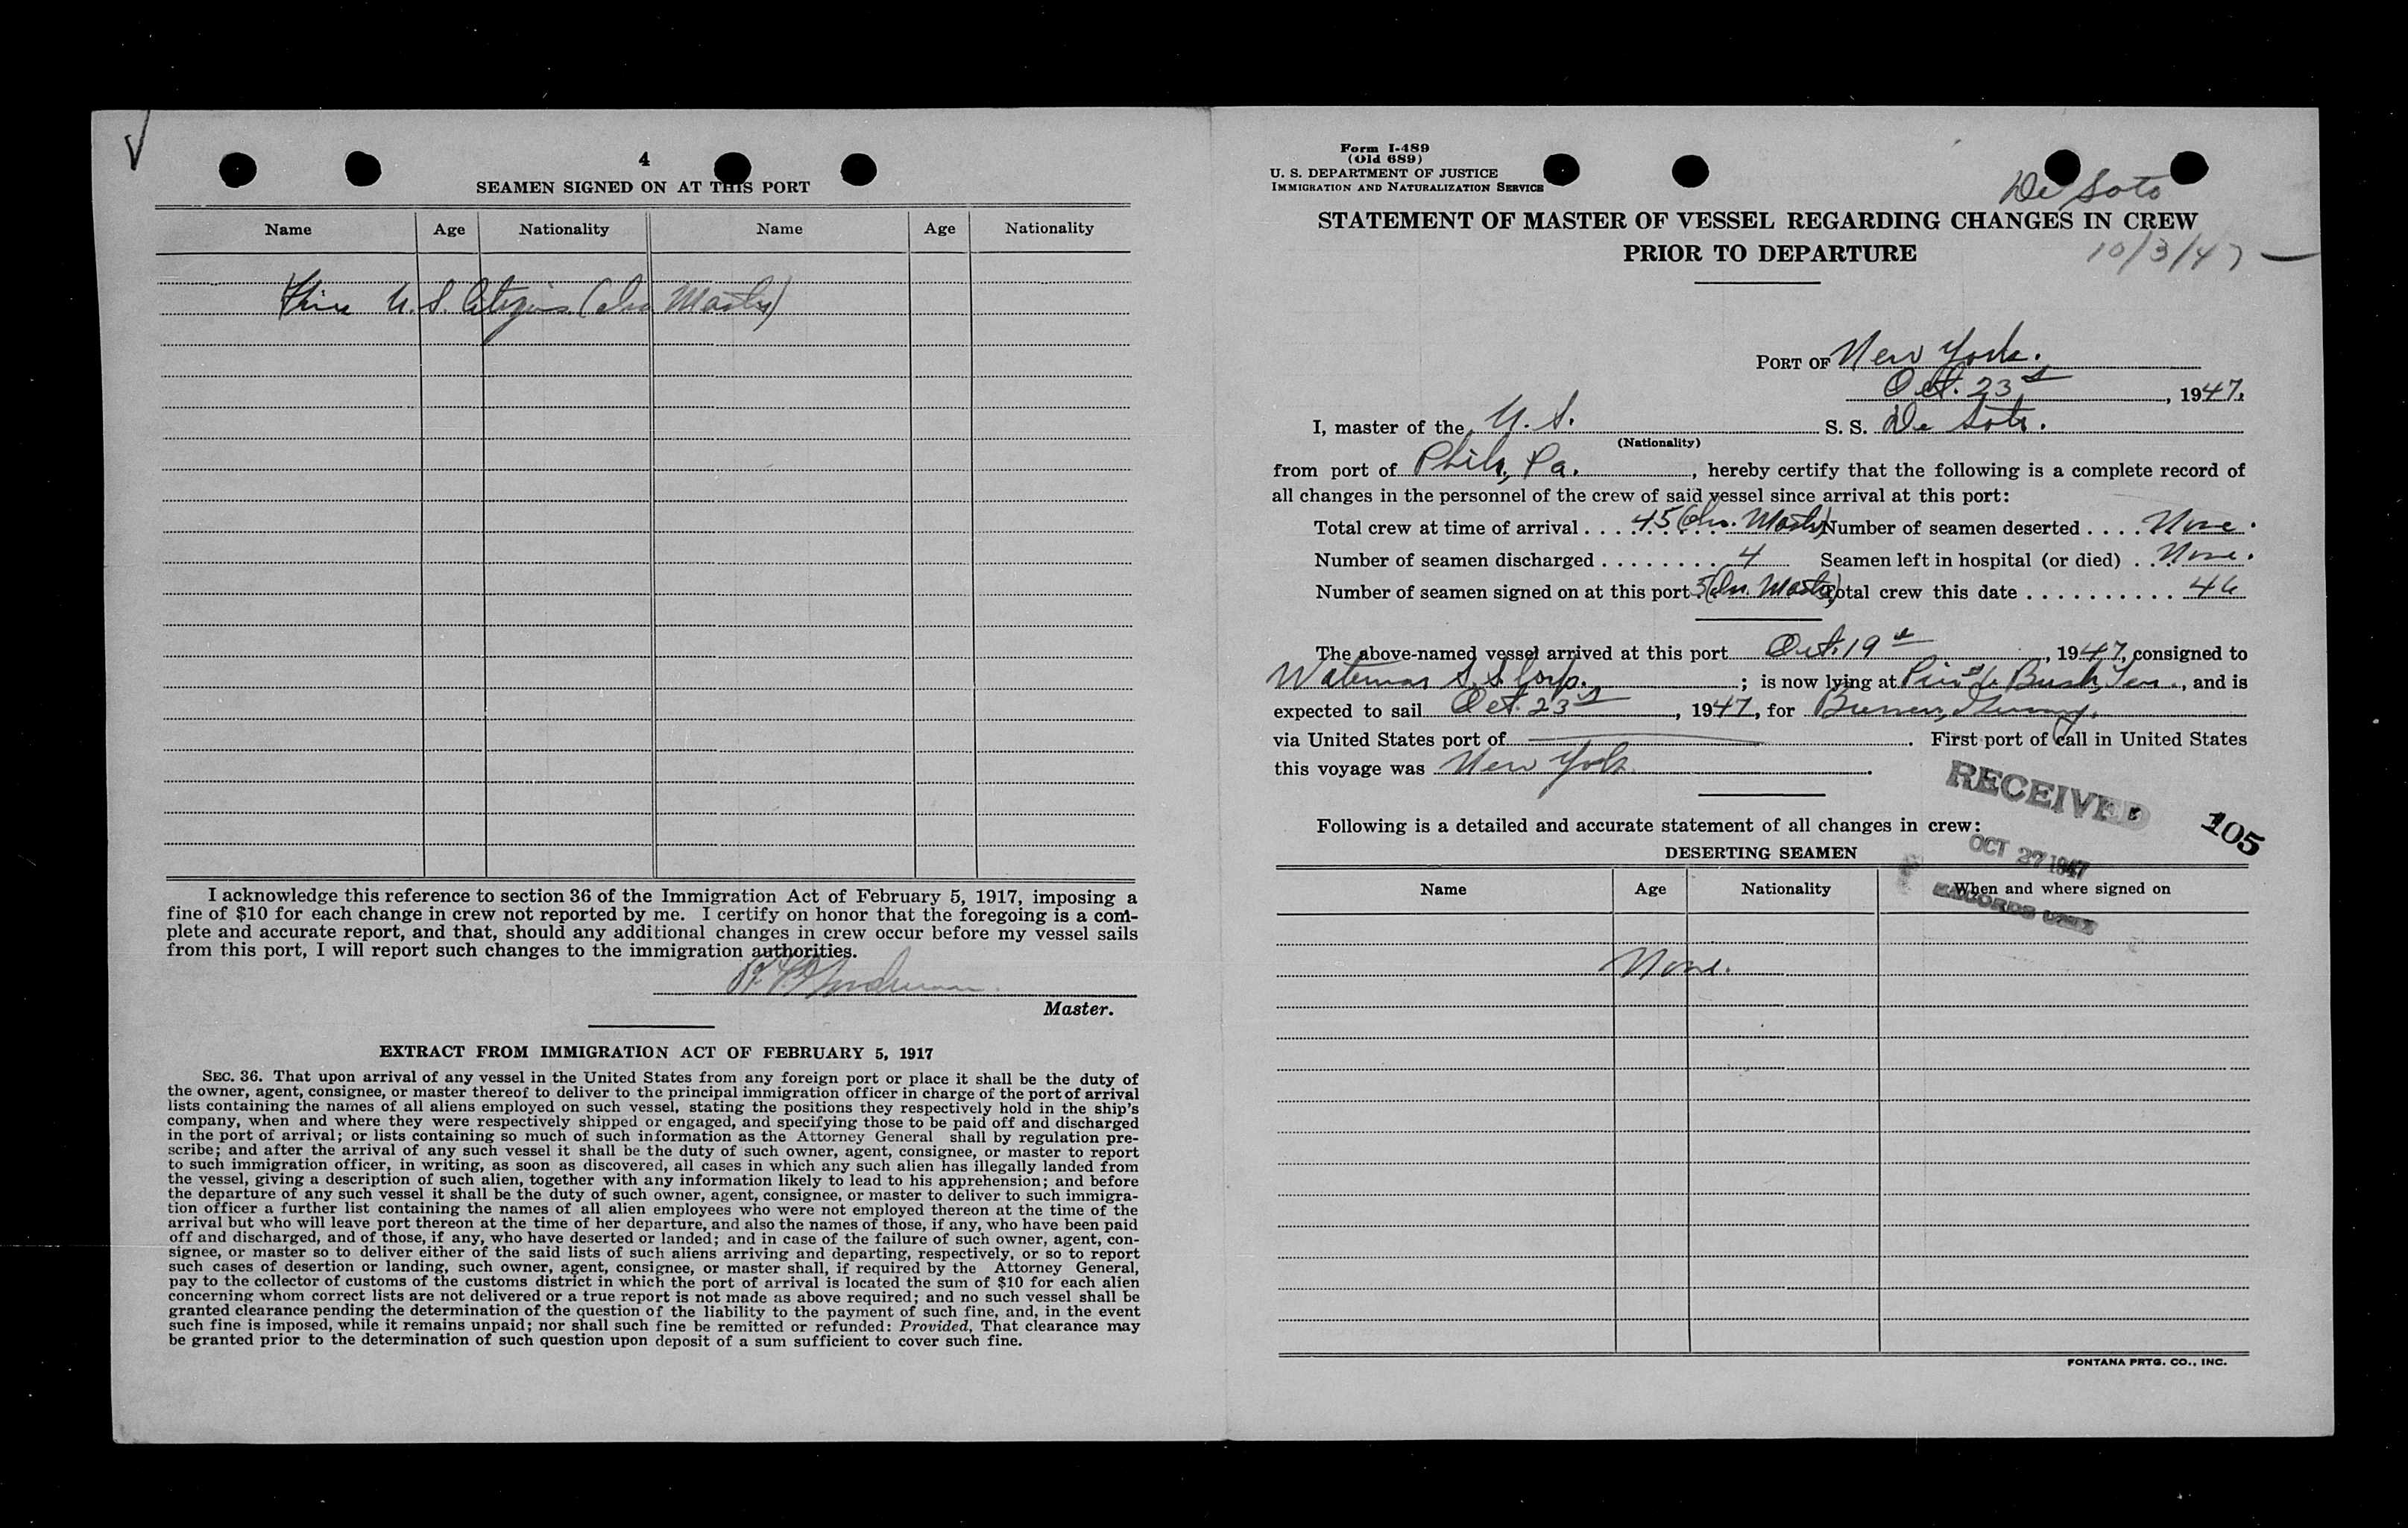 4
SEAMEN SIGNED ON AT THIS PORT
Name Age Nationality Name Age Nationality
U. S. Citizens (Inc. Master)
I acknowledge this reference to section 36 of the Immigration Act of February 5, 1917, imposing a
fine of $10 for each change in crew not reported by me. I certify on honor that the foregoing is a com-
plete and accurate report, and that, should any additional changes in crew occur before my vessel sails
from this port, I will report such changes to the immigration authorities.
Master.
EXTRACT FROM IMMIGRATION ACT OF FEBRUARY 5, 1917
SEC. 36. That upon arrival of any vessel in the United States from any foreign port or place it shall be the duty of
the owner, agent, consignee, or master thereof to deliver to the principal immigration officer in charge of the port of arrival
lists containing the names of all aliens employed on such vessel, stating the positions they respectively hold in the ship's
company, when and where they were respectively shipped or engaged, and specifying those to be paid off and discharged
in the port of arrival; or lists containing so much of such information as the Attorney General shall by regulation pre-
scribe; and after the arrival of any such vessel it shall be the duty of such owner, agent, consignee, or master to report
to such immigration officer, in writing, as soon as discovered, all cases in which any such alien has illegally landed from
the vessel, giving a description of such alien, together with any information likely to lead to his apprehension; and before
the departure of any such vessel it shall be the duty of such owner, agent, consignee, or master to deliver to such immigra-
tion officer a further list containing the names of all alien employees who were not employed thereon at the time of the
arrival but who will leave port thereon at the time of her departure, and also the names of those, if any, who have been paid
off and discharged, and of those, if any, who have deserted or landed; and in case of the failure of such owner, agent, con-
signee, or master so to deliver either of the said lists of such aliens arriving and departing, respectively, or so to report
such cases of desertion or landing, such owner, agent, consignee, or master shall, if required by the Attorney General,
pay to the collector of customs of the customs district in which the port of arrival is located the sum of $10 for each alien
concerning whom correct lists are not delivered or a true report is not made as above required; and no such vessel shall be
granted clearance pending the determination of the question of the liability to the payment of such fine, and, in the event
such fine is imposed, while it remains unpaid; nor shall such fine be remitted or refunded: Provided, That clearance may
be granted prior to the determination of such question upon deposit of a sum sufficient to cover such fine.
Form I-489
(Old 689)
U. S. DEPARTMENT OF JUSTICE
IMMIGRATION AND NATURALIZATION SERVICE
De Soto
STATEMENT OF MASTER OF VESSEL REGARDING CHANGES IN CREW
PRIOR TO DEPARTURE
10/3/47
PORT OF New York.
Oct. 23d, 1947.
I, master of the U. S. S. S. De Soto.
(Nationality)
from port of Phila, Pa., hereby certify that the following is a complete record of
all changes in the personnel of the crew of said vessel since arrival at this port:
Total crew at time of arrival .... 45 (Inc. Master) Number of seamen deserted .... None.
Number of seamen discharged ........ 4 Seamen left in hospital (or died) .. None.
Number of seamen signed on at this port. 5 (Inc. Master) Total crew this date .......... 46
The above-named vessel arrived at this port Oct. 19th, 1947, consigned to
Waterman S. S. Corp.; is now lying at Pier 6 Bush Ter., and is
expected to sail Oct. 23d, 1947, for Bremen, Germany.
via United States port of —. First port of call in United States
this voyage was New York.
RECEIVED
105
Following is a detailed and accurate statement of all changes in crew:
OCT 27 1947
DESERTING SEAMEN
RECORDS UNIT
Name Age Nationality When and where signed on
None.
FONTANA PRTG. CO., INC.